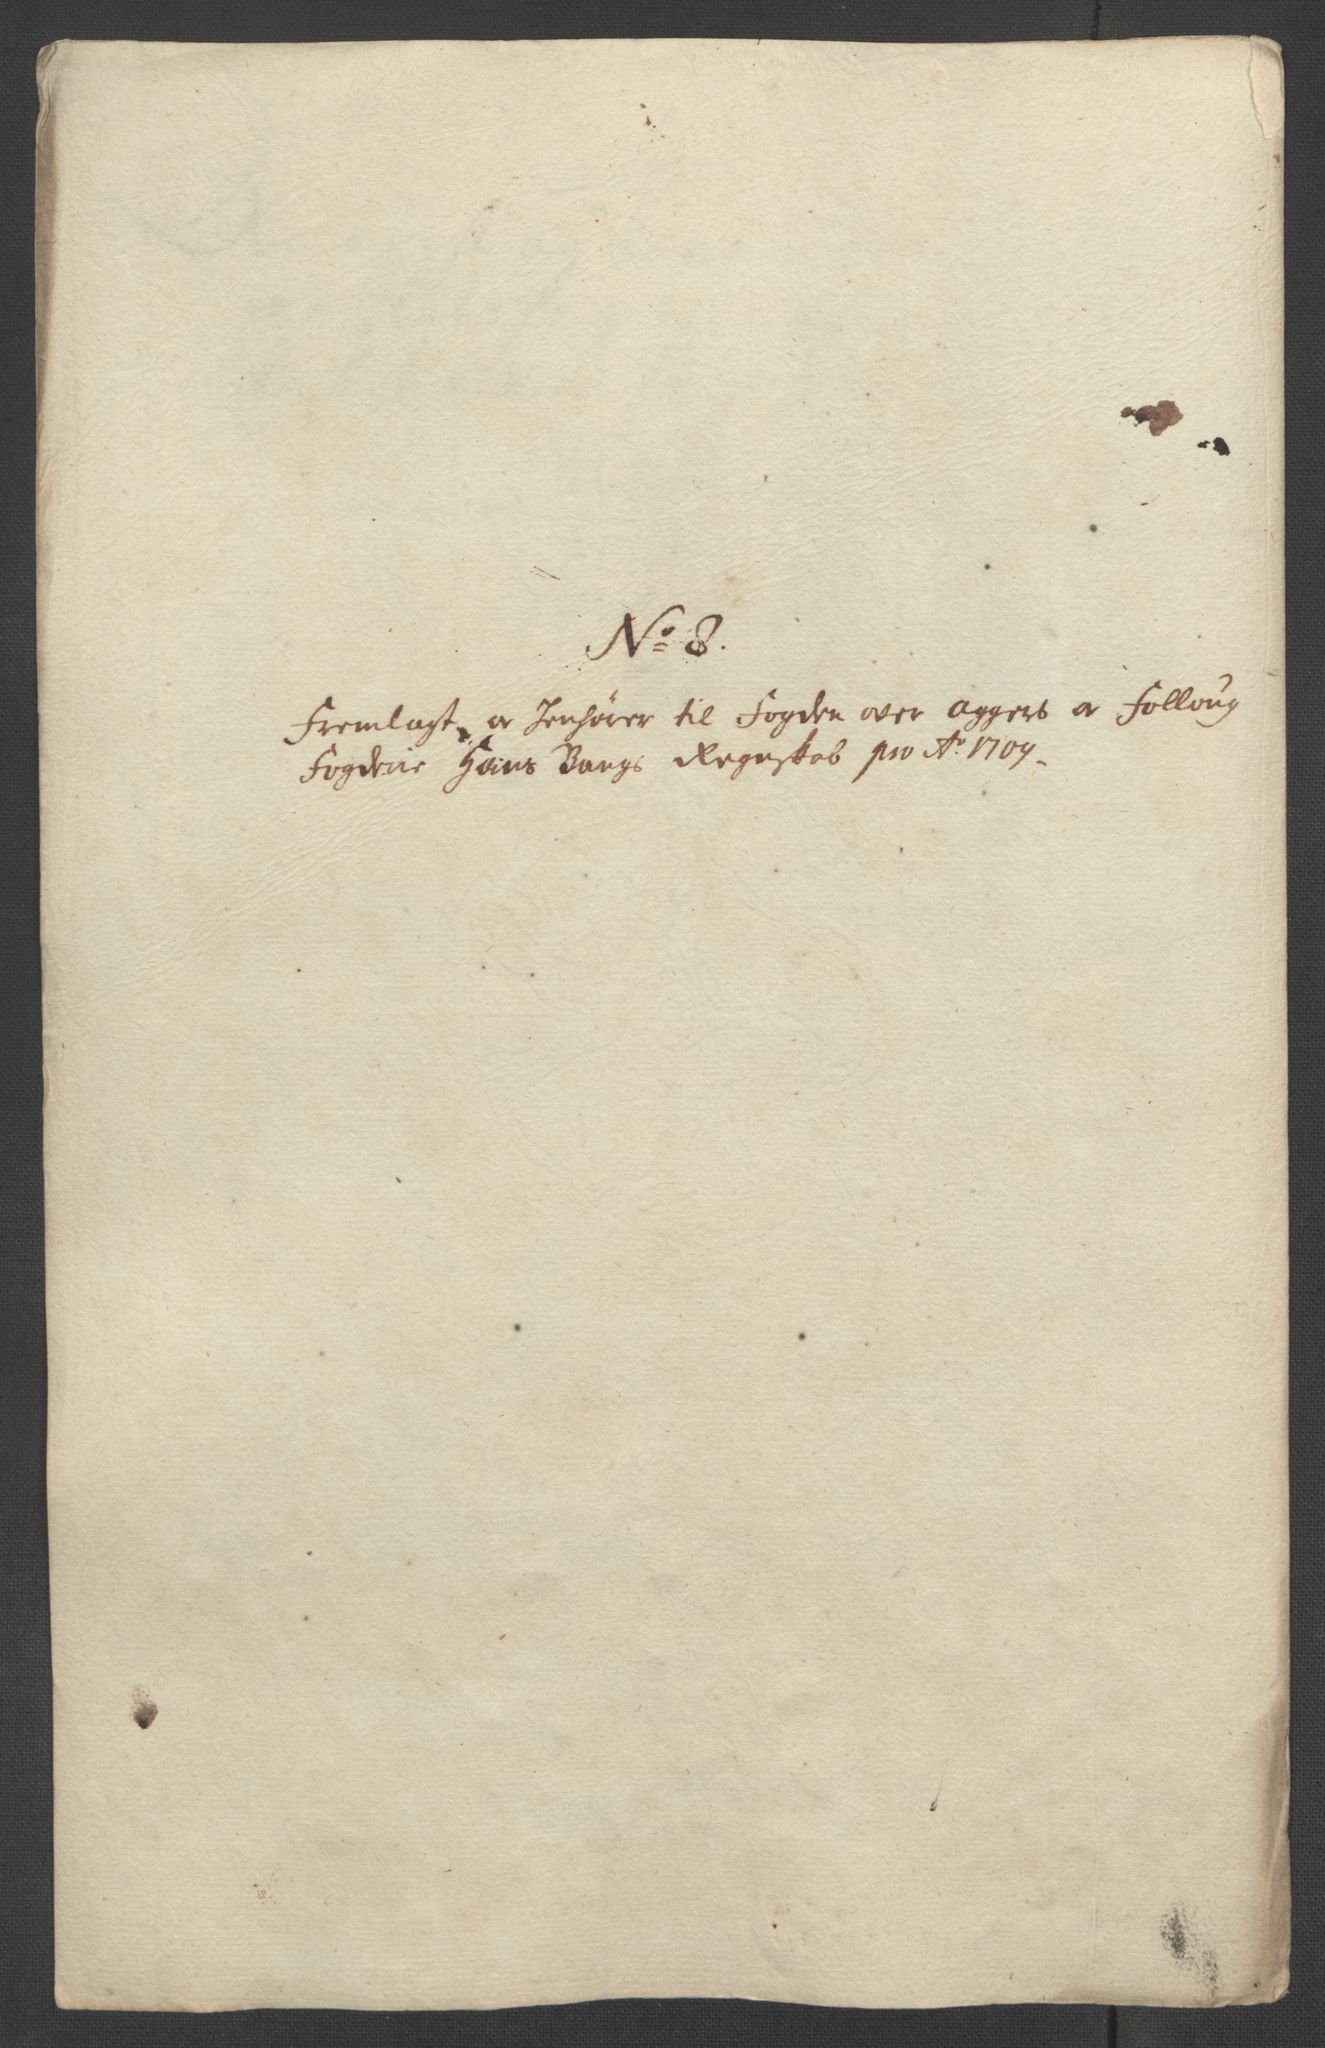 No 8.
Fremlagt, og Henhører til Fogden over Aggers og Folloug
Fogderie Hans Bangs Regnskab pro Ao. 1709.